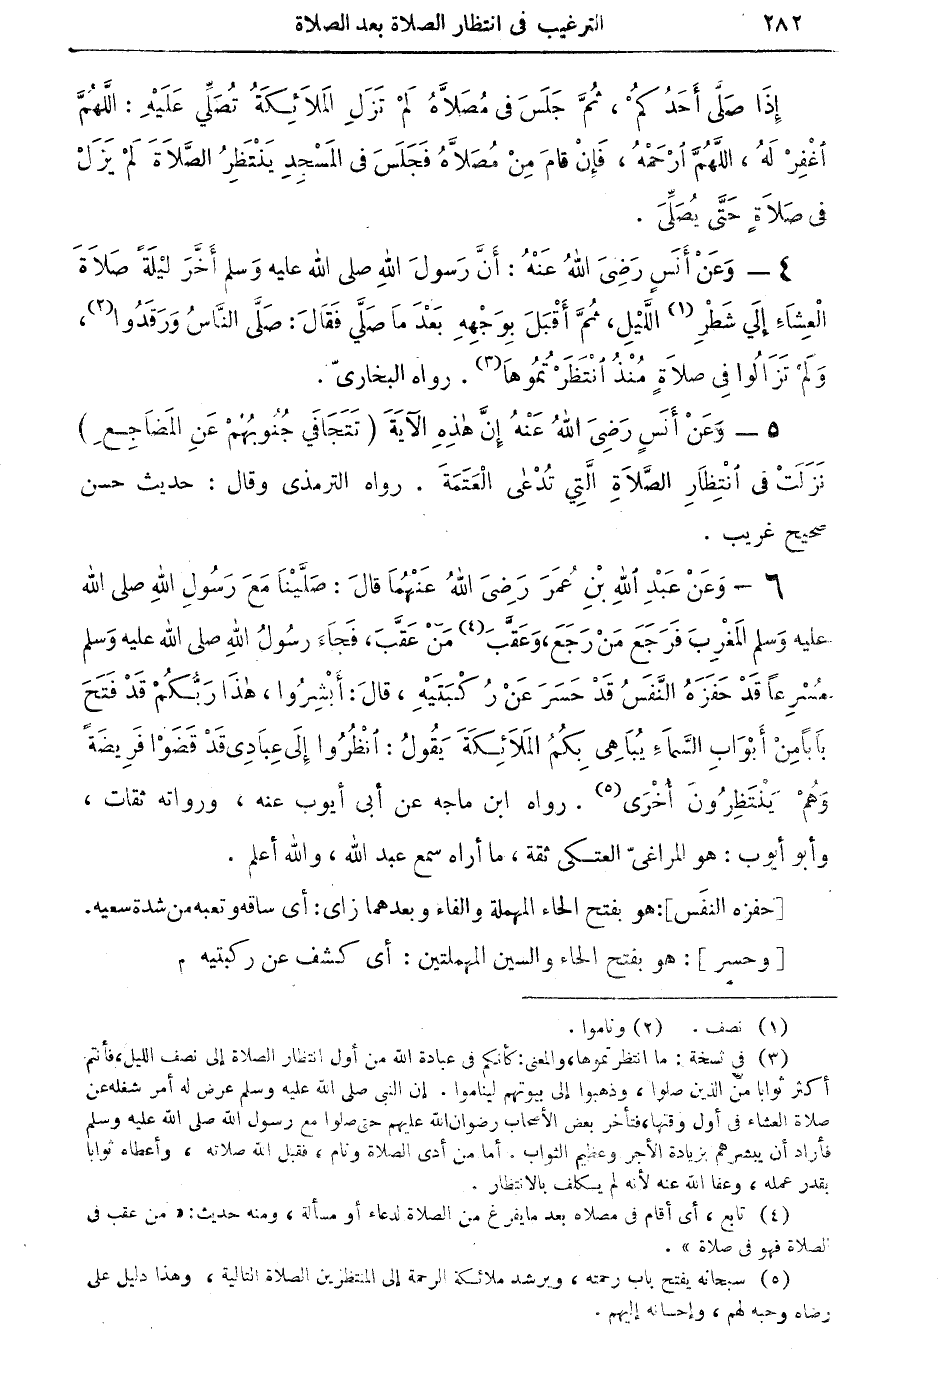 ٢٨٢ الترغيب فى انتظار الصلاة بعد الصلاة
إِذَا صَلَّى أَحَدُكُمْ ، ثُمَّ جَلَسَ فى مُصَلاَّهُ لَمْ تَزَلِ المَلاَئِكَةُ تُصَلِّي عَلَيْهِ : اللَّهُمَّ
ٱغْفِرْ لَهُ ، اللَّهُمَّ ٱرْحَمْهُ ، فَإِنْ قَامَ مِنْ مُصَلاَّهُ فَجَلَسَ فى المَسْجِدِ يَنْتَظِرُ الصَّلاَةَ لَمْ يَزَلْ
فى صَلاَةٍ حَتَّى يُصَلِّىَ .
٤ — وَعَنْ أَنَسٍ رَضِىَ اللهُ عَنْهُ : أَنَّ رَسُولَ اللهِ صلى الله عليه وَسلم أَخَّرَ لَيْلَةً صَلاَةَ
الْعِشَاءِ إِلَي شَطْرِ (١) اللَّيْلِ، ثُمَّ أَقْبَلَ بِوَجْهِهِ بَعْدَ مَا صَلَّي فَقَالَ: صَلَّى النَّاسُ وَرَقَدُوا(٢)،
وَلَمْ تَزَالُوا فِى صَلاَةٍ مُنْذُ ٱنْتَظَرْتُمُوهَا(٣) . رواه البخارىّ .
٥ — وَعَنْ أَنَسٍ رَضِىَ اللهُ عَنْهُ إِنَّ هٰذِهِ الآيَةَ ( تَتَجَافَي جُنُوبُهُمْ عَنِ المَضَاجِعِ )
نَزَلَتْ فى ٱنْتِظَارِ الصَّلاَةِ الَّتِي تُدْعَى الْعَتَمَةَ . رواه الترمذى وقال : حديث حسن
صحيح غريب .
٦ — وَعَنْ عَبْدِ ٱللهِ بْنِ عُمَرَ رَضِىَ اللهُ عَنْهُمَا قَالَ : صَلَّيْنَا مَعَ رَسُولِ اللهِ صلى الله
عليه وَسلم المَغْرِبَ فَرَجَعَ مَنْ رَجَعَ، وَعَقَّبَ(٤) مَنْ عَقَّبَ، فَجَاءَ رسولُ اللهِ صلى الله عليه وَسلم
مُسْرِعاً قَدْ حَفَزَهُ النَّفَسُ قَدْ حَسَرَ عَنْ رُكْبَتَيْهِ ، قَالَ: أَبْشِرُوا ، هٰذَا رَبُّكُمْ قَدْ فَتَحَ
بَاباً مِنْ أَبْوَابِ السَّمَاءِ يُبَاهِى بِكُمُ المَلاَئِكَةَ يَقُولُ : ٱنْظُرُوا إِلَى عِبَادِى قَدْ قَضَوْا فَرِيضَةً
وَهُمْ يَنْتَظِرُونَ أُخْرَى(٥) . رواه ابن ماجه عن أبى أيوب عنه ، ورواته ثقات ،
وأبو أيوب : هو المراغىّ العتكى ثقة ، ما أراه سمع عبد الله ، والله أعلم .
[حفزه النفَس]: هو بفتح الحاء المهملة والفاء وبعدهما زاى : أى ساقه وتعبه من شدة سعيه.
[ وحسر ] : هو بفتح الحاء والسين المهملتين : أى كشف عن ركبتيه م
(١) نصف . (٢) وناموا .
(٣) فى نسخة : ما انتظرتموها، والمعنى: كأنكم فى عبادة الله من أول انتظار الصلاة إلى نصف الليل، فأنتم
أكثر ثوابا من الذين صلوا ، وذهبوا إلى بيوتهم ليناموا . إن النبي صلى الله عليه وسلم عرض له أمر شغله عن
صلاة العشاء فى أول وقتها، فتأخر بعض الأصحاب رضوان الله عليهم حتى صلوا مع رسول الله صلى الله عليه وسلم
فأراد أن يبشرهم بزيادة الأجر وعظيم الثواب . أما من أدى الصلاة ونام ، فقبل الله صلاته ، وأعطاه ثوابا
بقدر عمله ، وعفا الله عنه لأنه لم يكلف بالانتظار .
(٤) تابع ، أى أقام فى مصلاه بعد مايفرغ من الصلاة لدعاء أو مسألة ، ومنه حديث: « من عقب فى
الصلاة فهو فى صلاة » .
(٥) سبحانه يفتح باب رحمته ، ويرشد ملائكة الرحمة إلى المنتظرين الصلاة التالية ، وهذا دليل على
رضاه وحبه لهم ، وإحسانه إليهم .